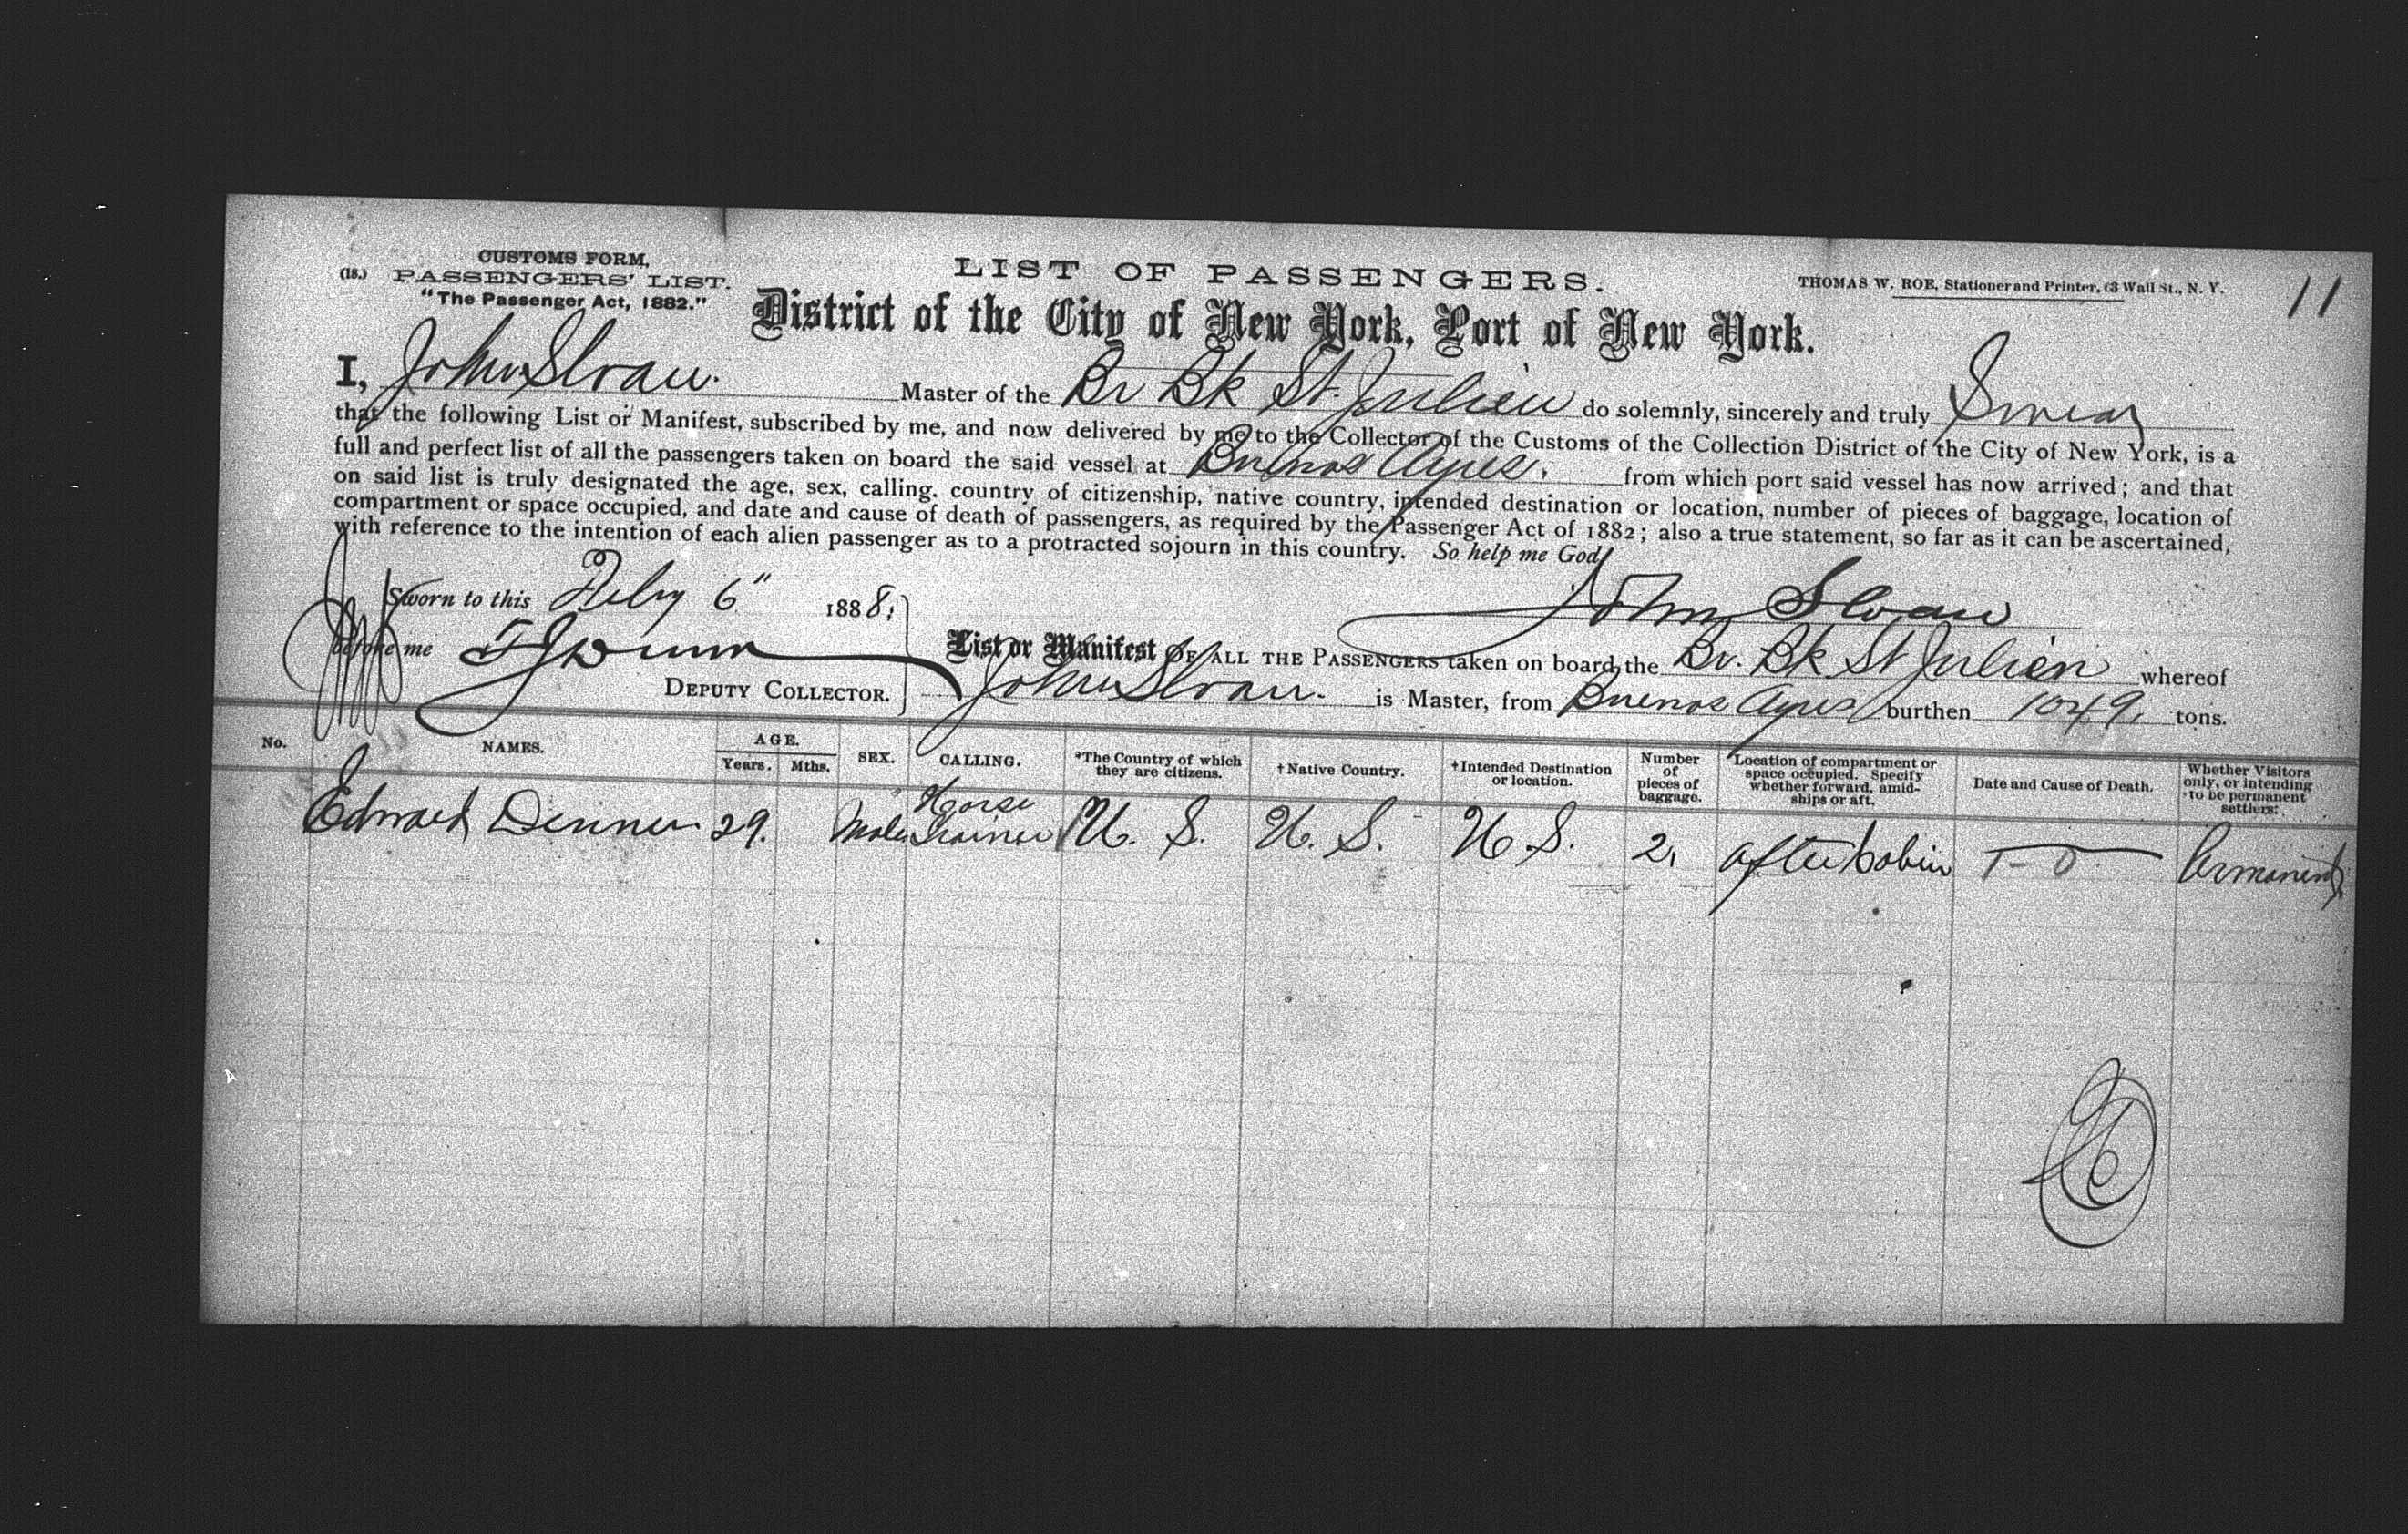 CUSTOMS FORM,
(18.) PASSENGERS' LIST.
"The Passenger Act, 1882."
LIST OF PASSENGERS.
THOMAS W. ROE, Stationer and Printer, 63 Wall St., N. Y.
11
District of the City of New York, Port of New York.
I, John Sloan. Master of the Br Bk St. Julien do solemnly, sincerely and truly Swear
that the following List or Manifest, subscribed by me, and now delivered by me to the Collector of the Customs of the Collection District of the City of New York, is a
full and perfect list of all the passengers taken on board the said vessel at Buenos Ayres. from which port said vessel has now arrived; and that
on said list is truly designated the age, sex, calling, country of citizenship, native country, intended destination or location, number of pieces of baggage, location of
compartment or space occupied, and date and cause of death of passengers, as required by the Passenger Act of 1882; also a true statement, so far as it can be ascertained,
with reference to the intention of each alien passenger as to a protracted sojourn in this country. So help me God
Sworn to this Feby 6" 1888.
John Sloan
before me
DEPUTY COLLECTOR.
List or Manifest OF ALL THE PASSENGERS taken on board the Br. Bk St Julien whereof
John Sloan. is Master, from Buenos Ayres burthen 1049. tons.
No. NAMES. AGE. Years. Mths. SEX. CALLING. *The Country of which they are citizens. †Native Country. ‡Intended Destination or location. Number of pieces of baggage. Location of compartment or space occupied. Specify whether forward, amidships or aft. Date and Cause of Death. Whether Visitors only, or intending to be permanent settlers.
Edward 29. Male Horse Trainer U. S. U. S. U S. 2. After Cabin Permanent